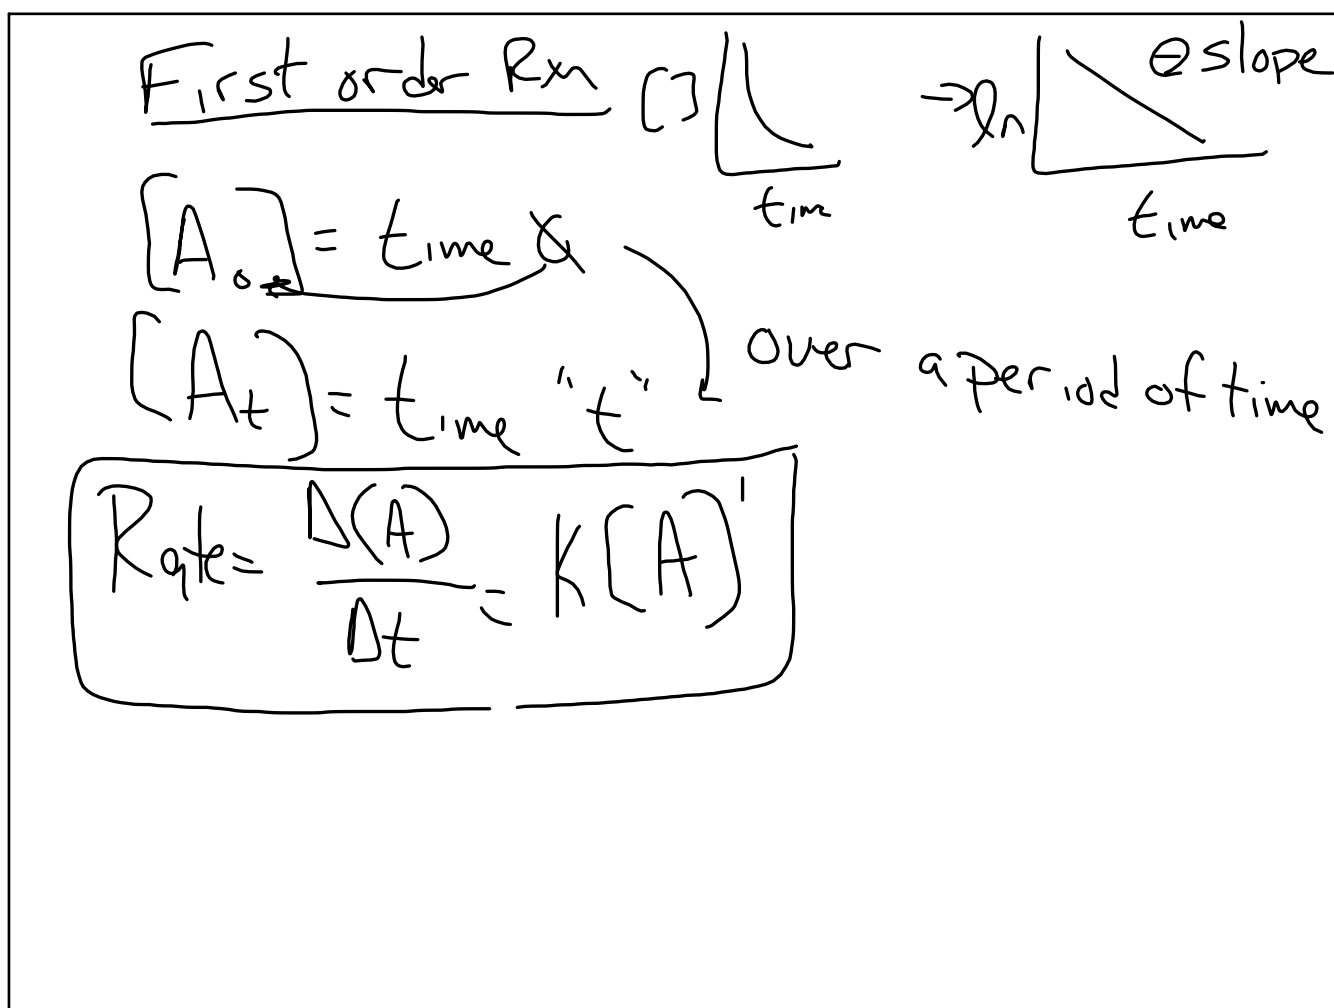 First order Rxn [ ] time → ln time ⊖ slope
[A₀] = time 0
[Aₜ] = time "t" over a period of time
Rate = Δ(A)/Δt = K[A]¹